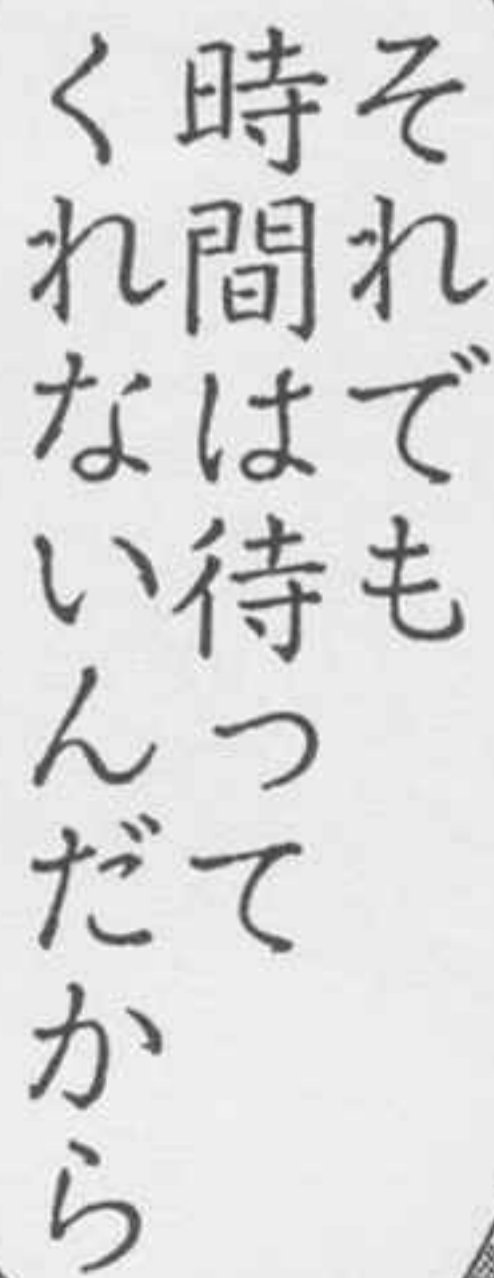 それでも
時間は待って
くれないんだから